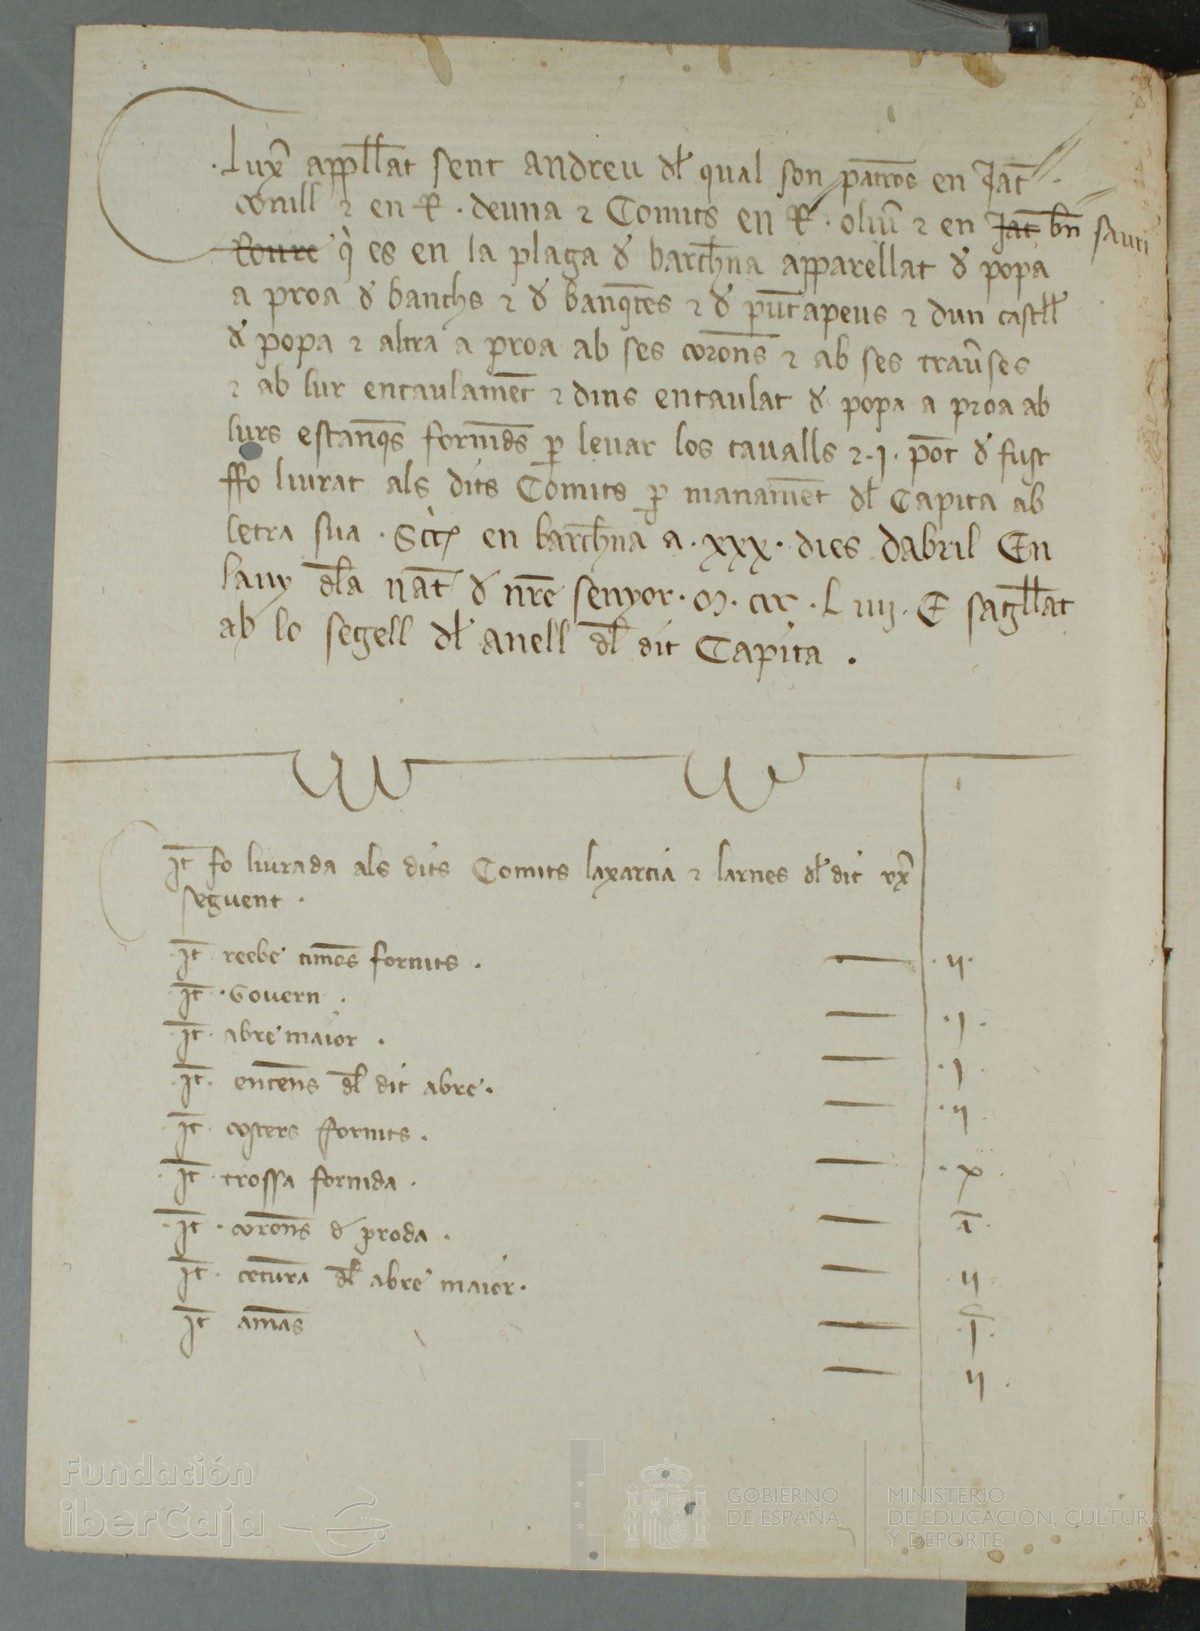 Luxer appellat sent Andreu dl qual son patrons en Jac
Conill ⁊ en R · deuna ⁊ Comits en R · oliu ⁊ en Jac bn sauri
Roure q es en la plaga d barchna apparellat d popa
a proa d banchs ⁊ d banquetes ⁊ d puntapeus ⁊ dun castell
d popa ⁊ altra a proa ab ses corones ⁊ ab ses trauses
⁊ ab lur entaulament ⁊ dins entaulat d popa a proa ab
lurs estanqs fornids p leuar los caualls ⁊ · j · pont d fust
ffo liurat als dits Comits p manament dl Capita ab
letra sua · Scr en barchna a · xxx · dies dabril En
lany dla nat d nre senyor · M · ccc · L iiij · E sagllat
ab lo segell dl anell dl dit Capita .
It fo liurada als dits Comits laxarcia ⁊ larnes dl dit ux
seguent ·
It reebe timons fornits . · ij ·
It · Govern . · j ·
It · abre maior . · j ·
It · entens dl dit abre . · ij ·
It · costers ffornits . · x ·
It · trossa fornida . a ·
It · corones d proda . ij
It · cetura dl abre maior . · j ·
It amas ij ·
Fundación
iberCaja
GOBIERNO
DE ESPAÑA
MINISTERIO
DE EDUCACIÓN, CULTURA
Y DEPORTE